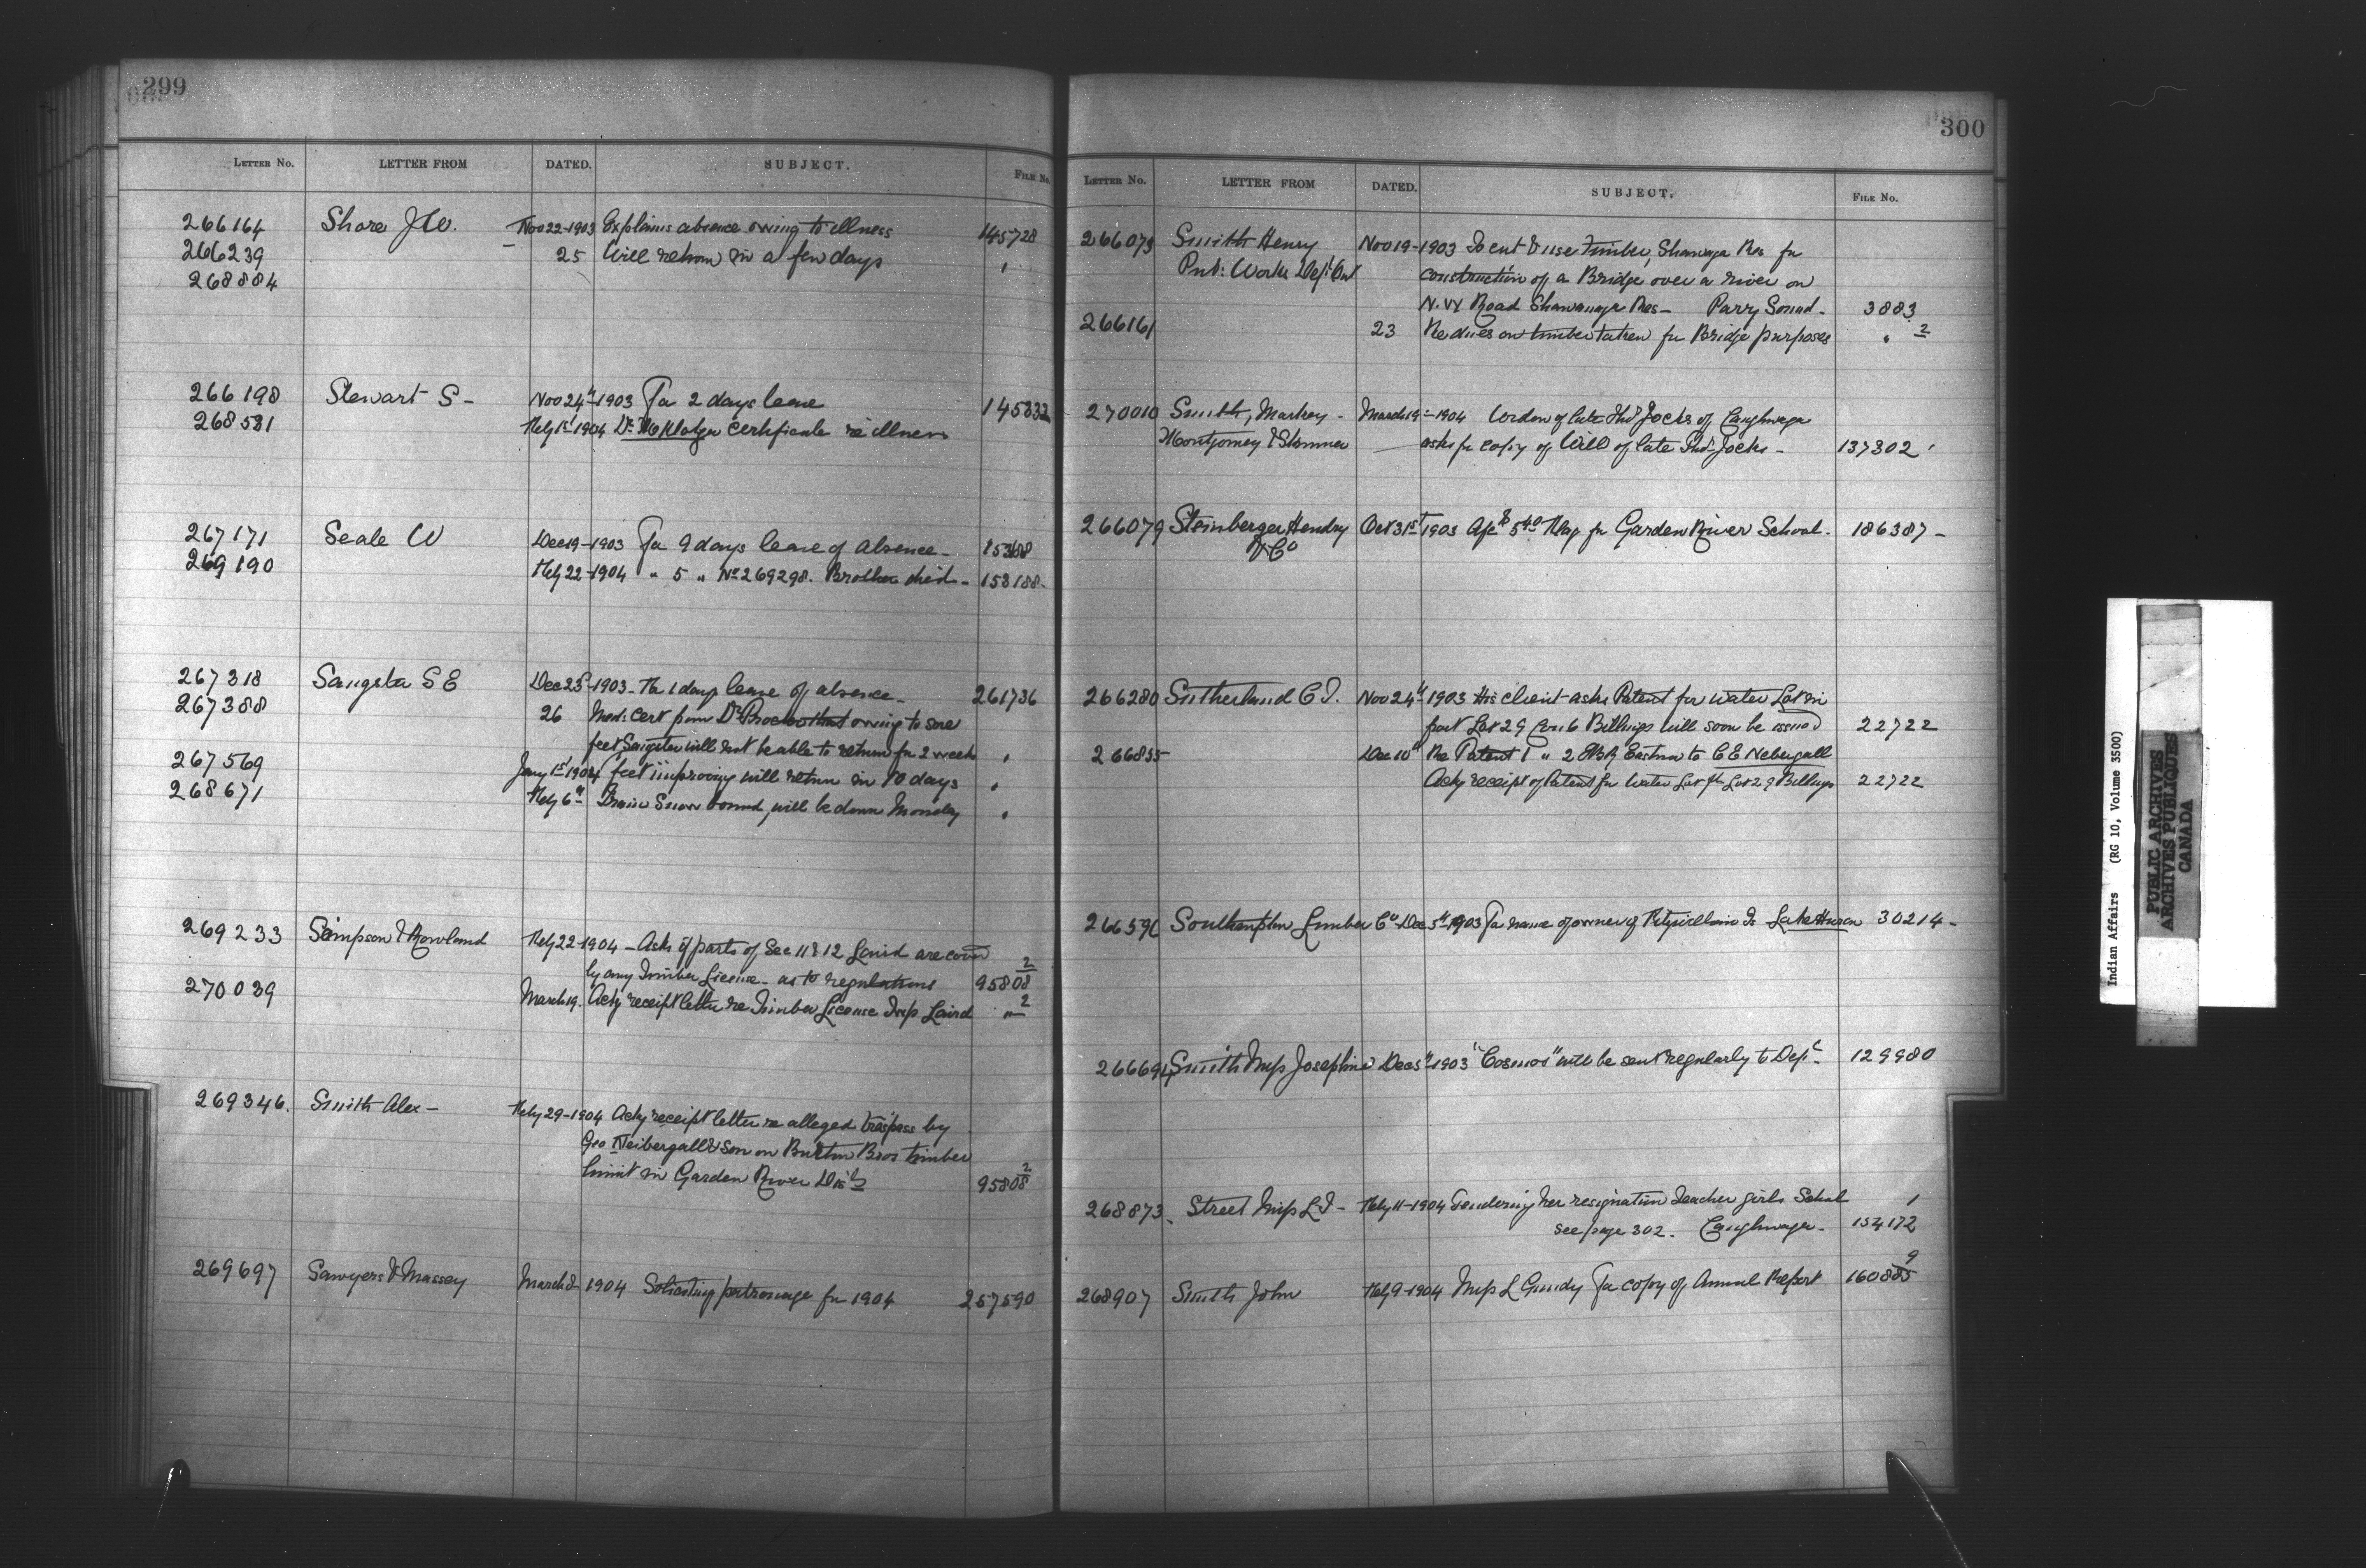 299
LETTER NO. LETTER FROM DATED. SUBJECT. FILE NO.
266164 Shore J W. Nov 22-1903 Explains absence owing to illness 145728
266239 25 Will return in a few days "
268884
266198 Stewart S- Nov 24th-1903 For 2 days leave 145832
268531 Feby 1st 1904 Dr certificate re illness
267171 Seale W Dec 19-1903 For 9 days leave of absence-
269190 Feby 22-1904 " 5 " No 269298. Brother died- 153188-
267318 Sangster S E Dec 23d-1903- Fr 1 days leave of absence- 261736
267388 26 Med: Cert from Dr owing to sore
feet Sangster will not be able to return for 2 weeks "
267569 Jany 1st 1904 feet improving will return in 10 days "
268671 Feby 6th Train Snow bound, will be down Monday "
269233 Simpson & Rowland Feby 22-1904 - Asks if parts of Sec 11 & 12 Laird are cov
by any Timber License- as to regulations 95808 2
270039 March 19. Ackg receipt letter re Timber License Twp Laird " 2
269346. Smith Alex- Feby 29-1904 Ackg receipt letter re alleged trespass by
Geo Neibergall & Son on Burton Bros timber
limit in Garden River Dist 95808 2
269697 Sawyers & Massey March 1904 Soliciting patronage for 1904 257590
300
LETTER NO. LETTER FROM DATED. SUBJECT. FILE NO.
266073 Smith Henry Nov 19-1903 To cut & use timber, Shawaga Res for
Pub: Works Dept Ont construction of a Bridge over a river on
N.W Road Shawanaga Res- Parry Sound- 3883
266161 23 Re dues on timber taken for Bridge purposes " 2
270010 Smith, Markey- March 19-1904 Widow of late Thos Jocks of Caughnaga
Montgomery & Skinner asks for copy of Will of late Thos Jocks- 137302
266079 Steinberger Hendry Oct 31st 1903 Ac $5.40 Flag for Garden River School. 186387-
& Co
266280 Sutherland C J. Nov 24th 1903 His client asks Patent for water Lot in
front Lot 29 Con 6 Billings will soon be issued 22722
266835 Dec 10th Re Patent 1 " 2 Eastern to C E Nebergall
Ackg receipt of Patent for Water Lot fr Lot 29 Billings 22722
266590 Southampton Lumber Co Dec 5th 1903 For name of owner of Fitzwilliam Is Lake Huron 30214-
266694 Smith Miss Josephine Dec 5th-1903 "Cosmos" will be sent regularly to Dept- 129980
268873. Street Miss L J- Feby 11-1904 Tendering her resignation Teacher girls School 1
see page 302. Caughnaga- 154172
268907 Smith John Feby 9-1904 Miss L Gundy For copy of Annual Report 160885 9
Indian Affairs (RG 10, Volume 3500)
PUBLIC ARCHIVES
ARCHIVES PUBLIQUES
CANADA